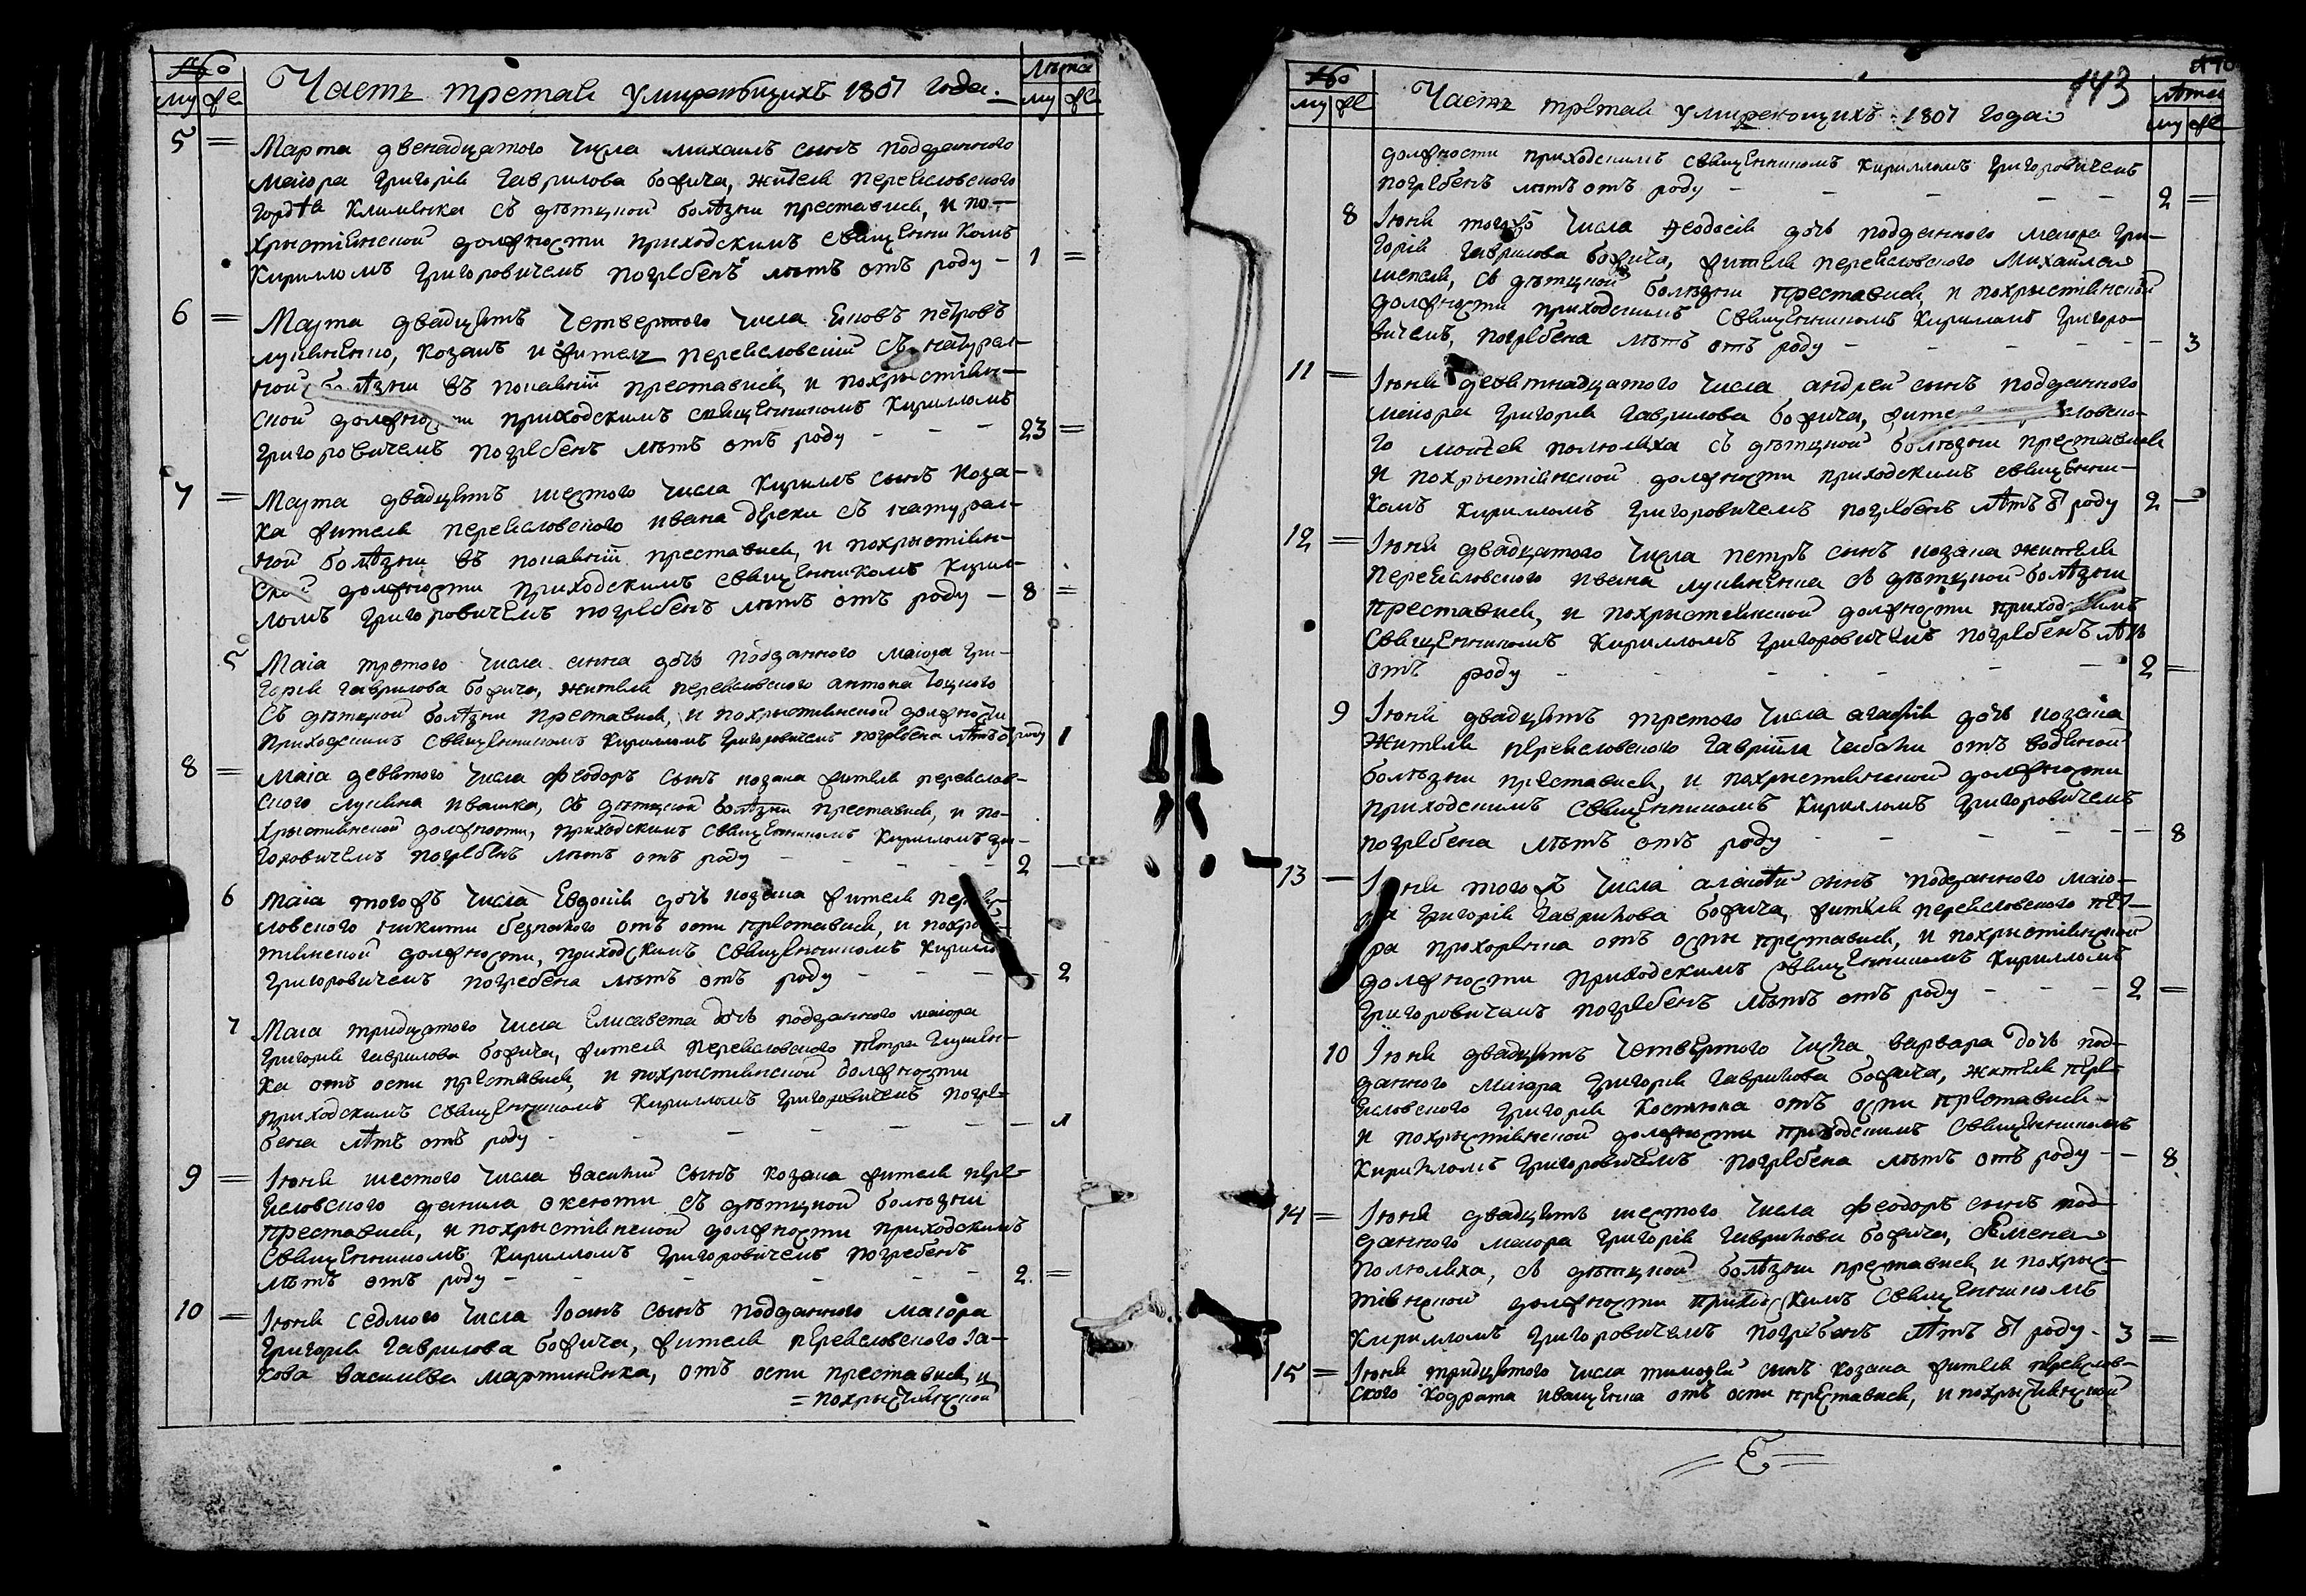 Часть третая умирающихъ 1807 года.
№о
му же
Лѣта
му же
5 = Марта двенадцатого числа михаилъ сынъ подданного
маіора григорія гаврилова божича, жителя переясловского
гордѣя климѣнка съ дѣтцкой болѣзни преставися, и по-
христіянской должности приходскимъ священникомъ
Кирилломъ григоровичемъ погребенъ лѣтъ отъ роду - 1 =
6 = Марта двадцять четвертого числа петровъ
козакъ и житель переясловскій съ натурал-
ной болѣзни въ покаяніи преставися, и похрыстіян-
ской должности приходскимъ священникомъ Кирилломъ
григоровичемъ погребенъ лѣтъ отъ роду - - - 23 =
7 = Марта двадцять шестого числа Кирилъ сынъ коза-
ка жителя переясловского ивана съ натурал-
ной болѣзни въ покаяніи преставися, и похрыстіян-
ской должности приходскимъ священникомъ Кирил-
ломъ григоровичемъ погребенъ лѣтъ отъ роду - 8 =
5 Маіа третого числа анна дочь подданного маіора гри-
горія гаврилова божича, жителя переясловского антона
съ дѣтцкой болѣзни преставися, и похрыстіянской должности
приходскимъ священникомъ Кирилломъ григоровичемъ погребена лѣтъ отъ роду 1
8 = Маіа девятого числа феодоръ сынъ козака жителя переяслов-
ского ивашка, съ дѣтцкой болѣзни преставися, и по-
хрыстіянской должности, приходскимъ священникомъ Кирилломъ гри-
горовичемъ погребенъ лѣтъ отъ роду - - - - 2 =
6 Маіа тогожъ числа Евдокія дочь козака жителя
словского никити отъ оспи преставися, и похрыс-
тиянской должности, приходскимъ священникомъ Кирилло
григоровичемъ погребена лѣтъ отъ роду - - - 2
7 Маіа тридцатого числа Елисавета дочь подданного маіора
григорія гаврилова божича, жителя переясловского петра
ка отъ оспи преставися, и похрыстиянской должности
приходскимъ священникомъ Кирилломъ григоровичемъ погре-
бена лѣтъ отъ роду - - - - - - 1
9 = Іюня шестого числа василий сынъ козака жителя пере-
ясловского данила съ дѣтцкой болѣзни
преставися, и похрыстіянской должности приходскимъ
священникомъ Кирилломъ григоровичемъ погребенъ
лѣтъ отъ роду - - - - - 2 =
10 = Іюня седмого числа Іоанъ сынъ подданного маіора
григорія гаврилова божича, жителя переясловского Іа-
кова василиева мартинѣнка, отъ оспи преставися, и
= похрыстиянской
143
Часть третая умирающихъ 1807 года
№о
му же
лѣта
му же
должности приходскимъ священникомъ Кирилломъ григоровичемъ
погребенъ лѣтъ отъ роду - - - - 2 =
8 Іюня тогожъ числа Феодосія дочь подданного маіора гри-
горія гаврилова божича, жителя переясловского Михайла
съ дѣтцкой болѣзни преставися, и похрыстіянской
должности приходскимъ священникомъ Кирилломъ григоро-
вичемъ, погребена лѣтъ отъ роду - - - - - 3
11 = Іюня девятнадцатого числа андрей сынъ подданного
маіора григорія гаврилова божича, словско-
го моисея полюляха съ дѣтцкой болѣзни преставися
и похрыстіянской должности приходскимъ священни-
комъ Кирилломъ григоровичемъ погребенъ лѣтъ отъ роду 2 =
12 = Іюня двадцатого числа петръ сынъ козака жителя
переясловского ивана съ дѣтцкой болѣзни
преставися, и похрыстиянской должности приходскимъ
священникомъ Кирилломъ григоровичемъ погребенъ лѣтъ
отъ роду - - - - - 2 =
9 Іюня двадцять третого числа агафія дочь козака
жителя переясловского гавріила отъ водяной
болѣзни преставися, и похрыстиянской должности
приходскимъ священникомъ Кирилломъ григоровичемъ
погребена лѣтъ отъ роду - - - - 8
13 = Іюня тогожъ числа алексѣй сынъ подданного маіо-
ра григорія гаврилова божича, жителя переясловского пет-
ра отъ оспи преставися, и похрыстіянской
должности приходскимъ священникомъ Кирилломъ
григоровичемъ погребенъ лѣтъ отъ роду - - - 2 =
10 Іюня двадцять четвертого числа варвара дочь под-
данного маіора григорія гаврилова божича, жителя пере-
ясловского григорія Костюка отъ оспи преставися
и похрыстіянской должности приходскимъ священникомъ
Кирилломъ григоровичемъ погребена лѣтъ отъ роду - - 8
14 = Іюня двадцять шестого числа феодоръ сынъ под-
данного маіора григорія гаврилова божича, Семена
полюляха, съ дѣтцкой болѣзни преставися, и похрыс-
тіянской должности приходскимъ священникомъ
Кирилломъ григоровичемъ погребенъ лѣтъ отъ роду - 3 =
15 = Іюня тридцятого числа тимофей сынъ козака жителя переяслов-
ского Кодрата иващѣнка отъ оспи преставися, и похрыстиянской